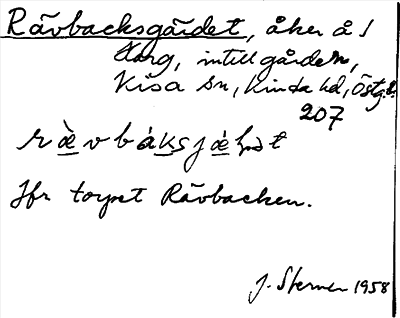 Rävbacksgärdet, åker å
Harg, intill gården,
Kisa sn, Kinda hd, Östg.
207
Jfr torpet Rävbacken.
J. Sterner 1958